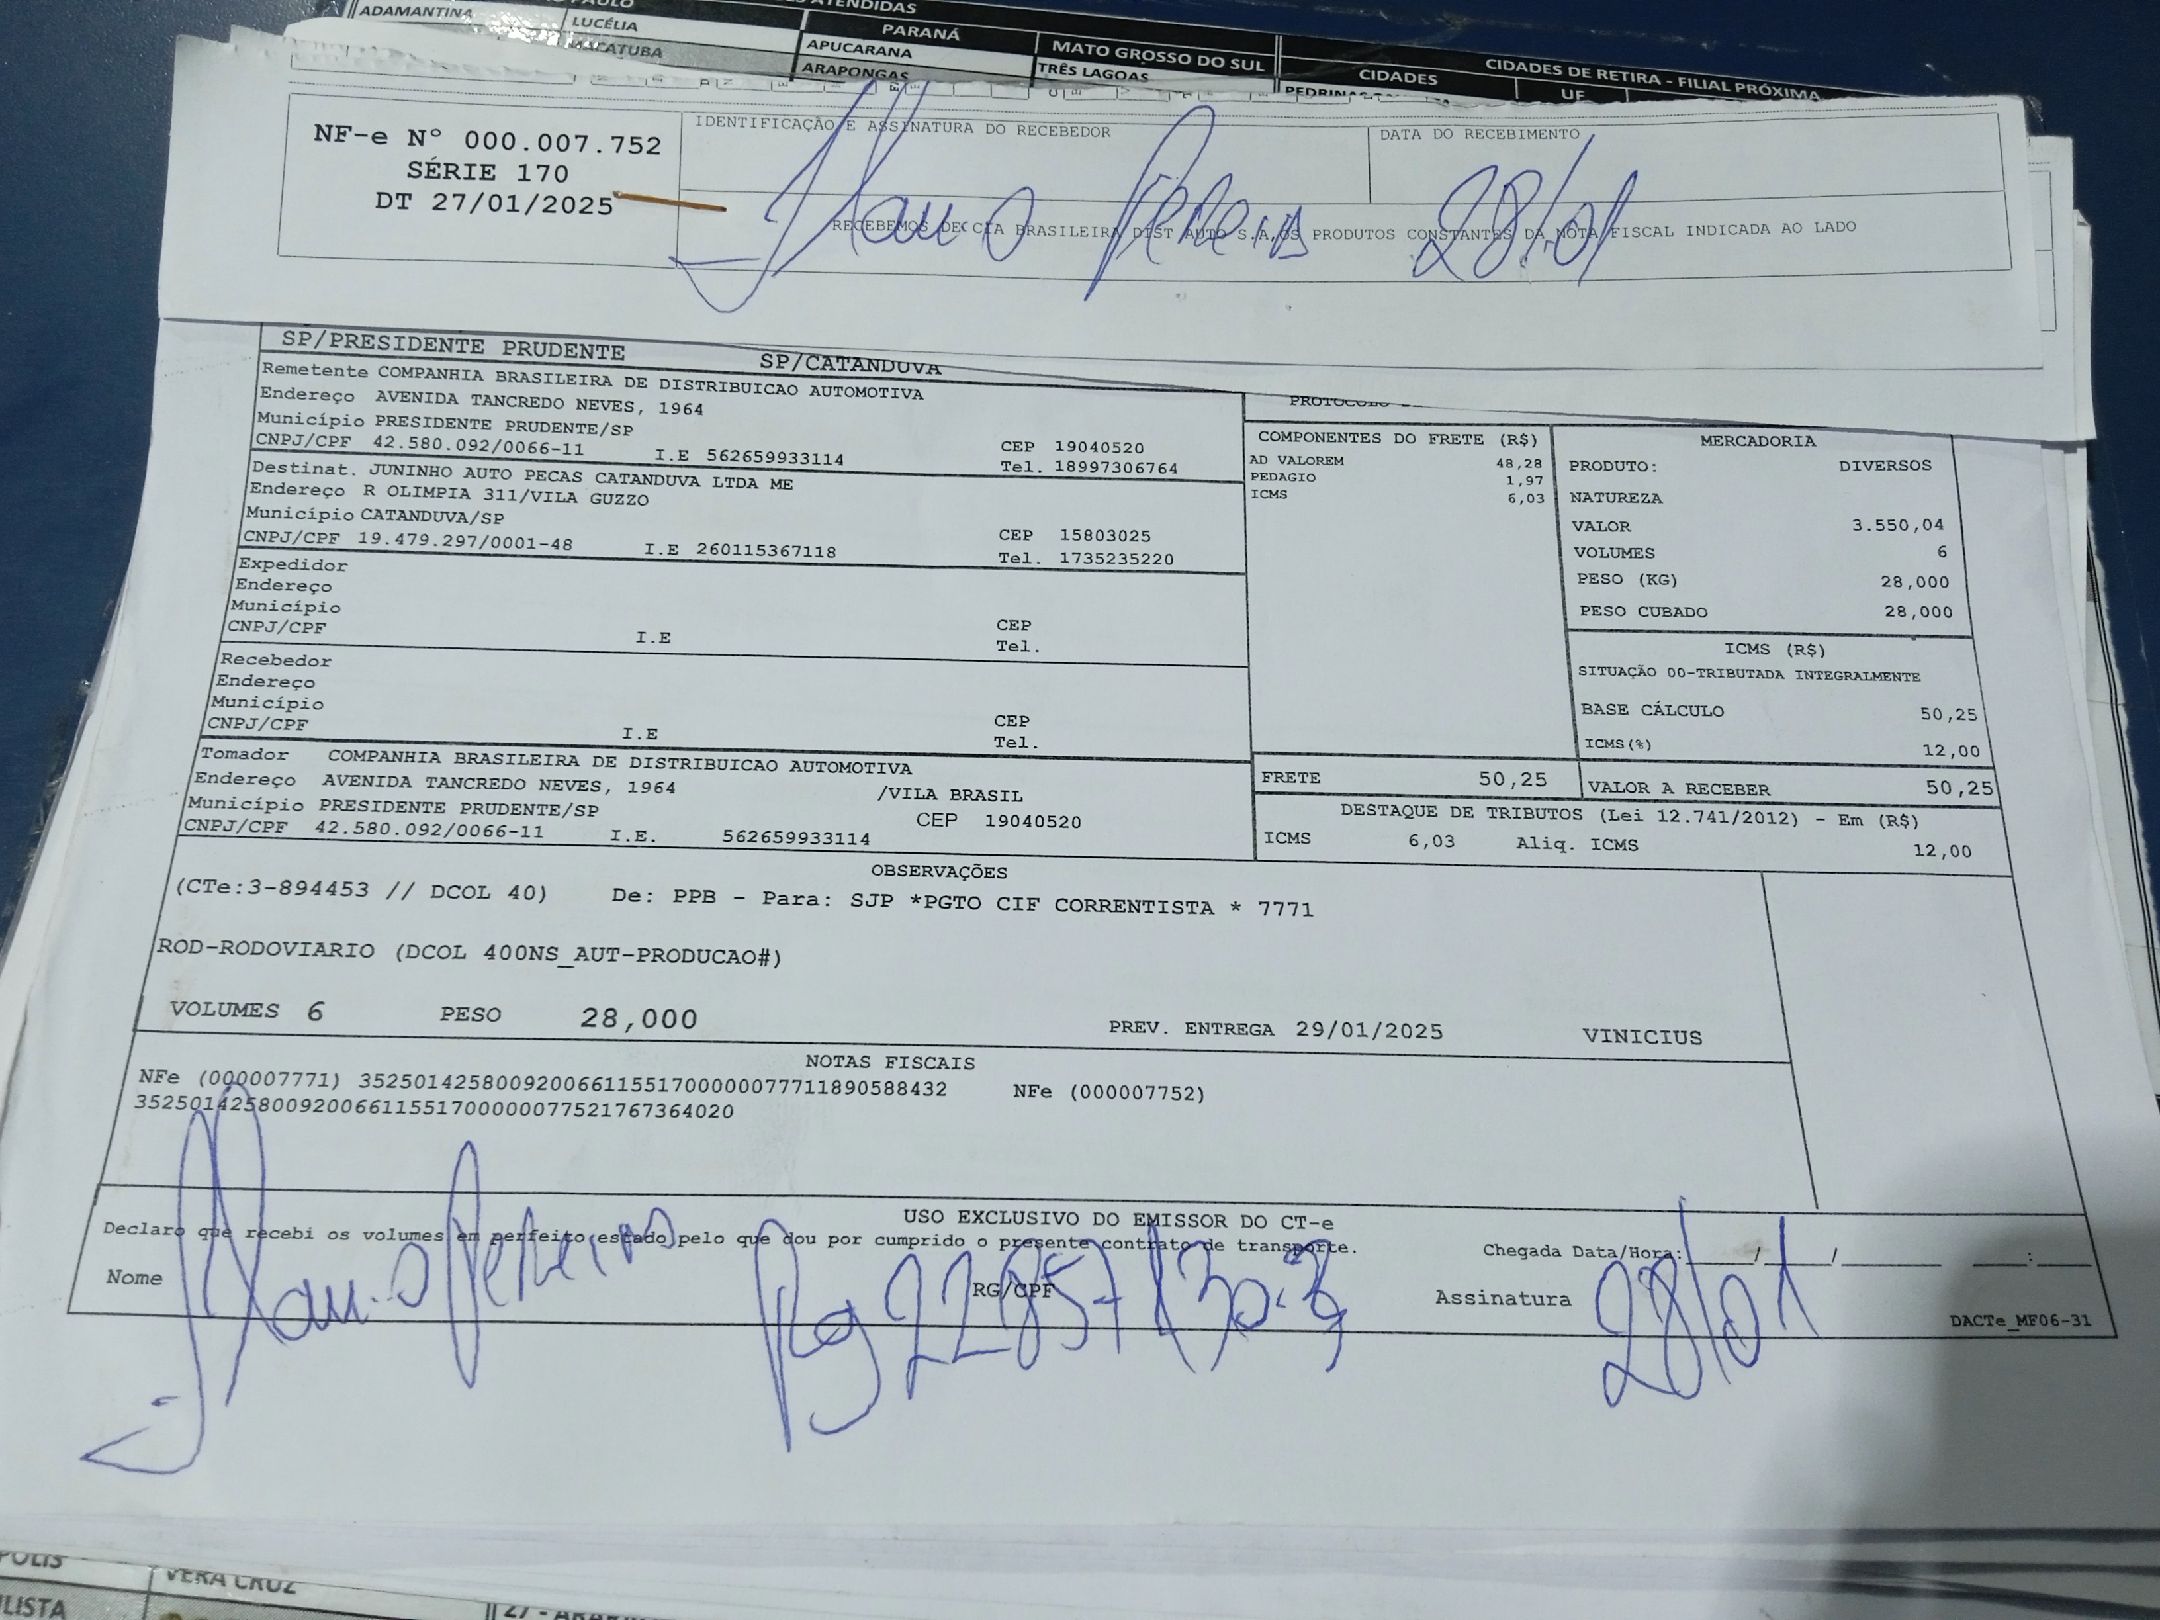 ADAMANTINA
LUCÉLIA
PARANÁ
APUCARANA
ARAPONGAS
MATO GROSSO DO SUL
TRÊS LAGOAS
CIDADES DE RETIRA - FILIAL PRÓXIMA
CIDADES
UF
NF-e Nº 000.007.752
SÉRIE 170
DT 27/01/2025
IDENTIFICAÇÃO E ASSINATURA DO RECEBEDOR
DATA DO RECEBIMENTO
28/01
RECEBEMOS DE CIA BRASILEIRA DIST AUTO S.A, OS PRODUTOS CONSTANTES DA NOTA FISCAL INDICADA AO LADO
SP/PRESIDENTE PRUDENTE SP/CATANDUVA
Remetente COMPANHIA BRASILEIRA DE DISTRIBUICAO AUTOMOTIVA
Endereço AVENIDA TANCREDO NEVES, 1964
Município PRESIDENTE PRUDENTE/SP CEP 19040520
CNPJ/CPF 42.580.092/0066-11 I.E 562659933114 Tel. 18997306764
Destinat. JUNINHO AUTO PECAS CATANDUVA LTDA ME
Endereço R OLIMPIA 311/VILA GUZZO
Município CATANDUVA/SP CEP 15803025
CNPJ/CPF 19.479.297/0001-48 I.E 260115367118 Tel. 1735235220
Expedidor
Endereço
Município CEP
CNPJ/CPF I.E Tel.
Recebedor
Endereço
Município CEP
CNPJ/CPF I.E Tel.
Tomador COMPANHIA BRASILEIRA DE DISTRIBUICAO AUTOMOTIVA
Endereço AVENIDA TANCREDO NEVES, 1964 /VILA BRASIL
Município PRESIDENTE PRUDENTE/SP CEP 19040520
CNPJ/CPF 42.580.092/0066-11 I.E. 562659933114
COMPONENTES DO FRETE (R$)
AD VALOREM 48,28
PEDAGIO 1,97
ICMS 6,03
FRETE 50,25
MERCADORIA
PRODUTO: DIVERSOS
NATUREZA
VALOR 3.550,04
VOLUMES 6
PESO (KG) 28,000
PESO CUBADO 28,000
ICMS (R$)
SITUAÇÃO 00-TRIBUTADA INTEGRALMENTE
BASE CÁLCULO 50,25
ICMS(%) 12,00
VALOR A RECEBER 50,25
DESTAQUE DE TRIBUTOS (Lei 12.741/2012) - Em (R$)
ICMS 6,03 Aliq. ICMS 12,00
OBSERVAÇÕES
(CTe:3-894453 // DCOL 40) De: PPB - Para: SJP *PGTO CIF CORRENTISTA * 7771
ROD-RODOVIARIO (DCOL 400NS_AUT-PRODUCAO#)
VOLUMES 6 PESO 28,000 PREV. ENTREGA 29/01/2025 VINICIUS
NOTAS FISCAIS
NFe (000007771) 35250142580092006611551700000077711890588432 NFe (000007752)
35250142580092006611551700000077521767364020
USO EXCLUSIVO DO EMISSOR DO CT-e
Declaro que recebi os volumes em perfeito estado pelo que dou por cumprido o presente contrato de transporte.
Chegada Data/Hora: ____/____/____ ___:___
Nome RG/CPF Assinatura 28/01
DACTe_MF06-31
VERA CRUZ